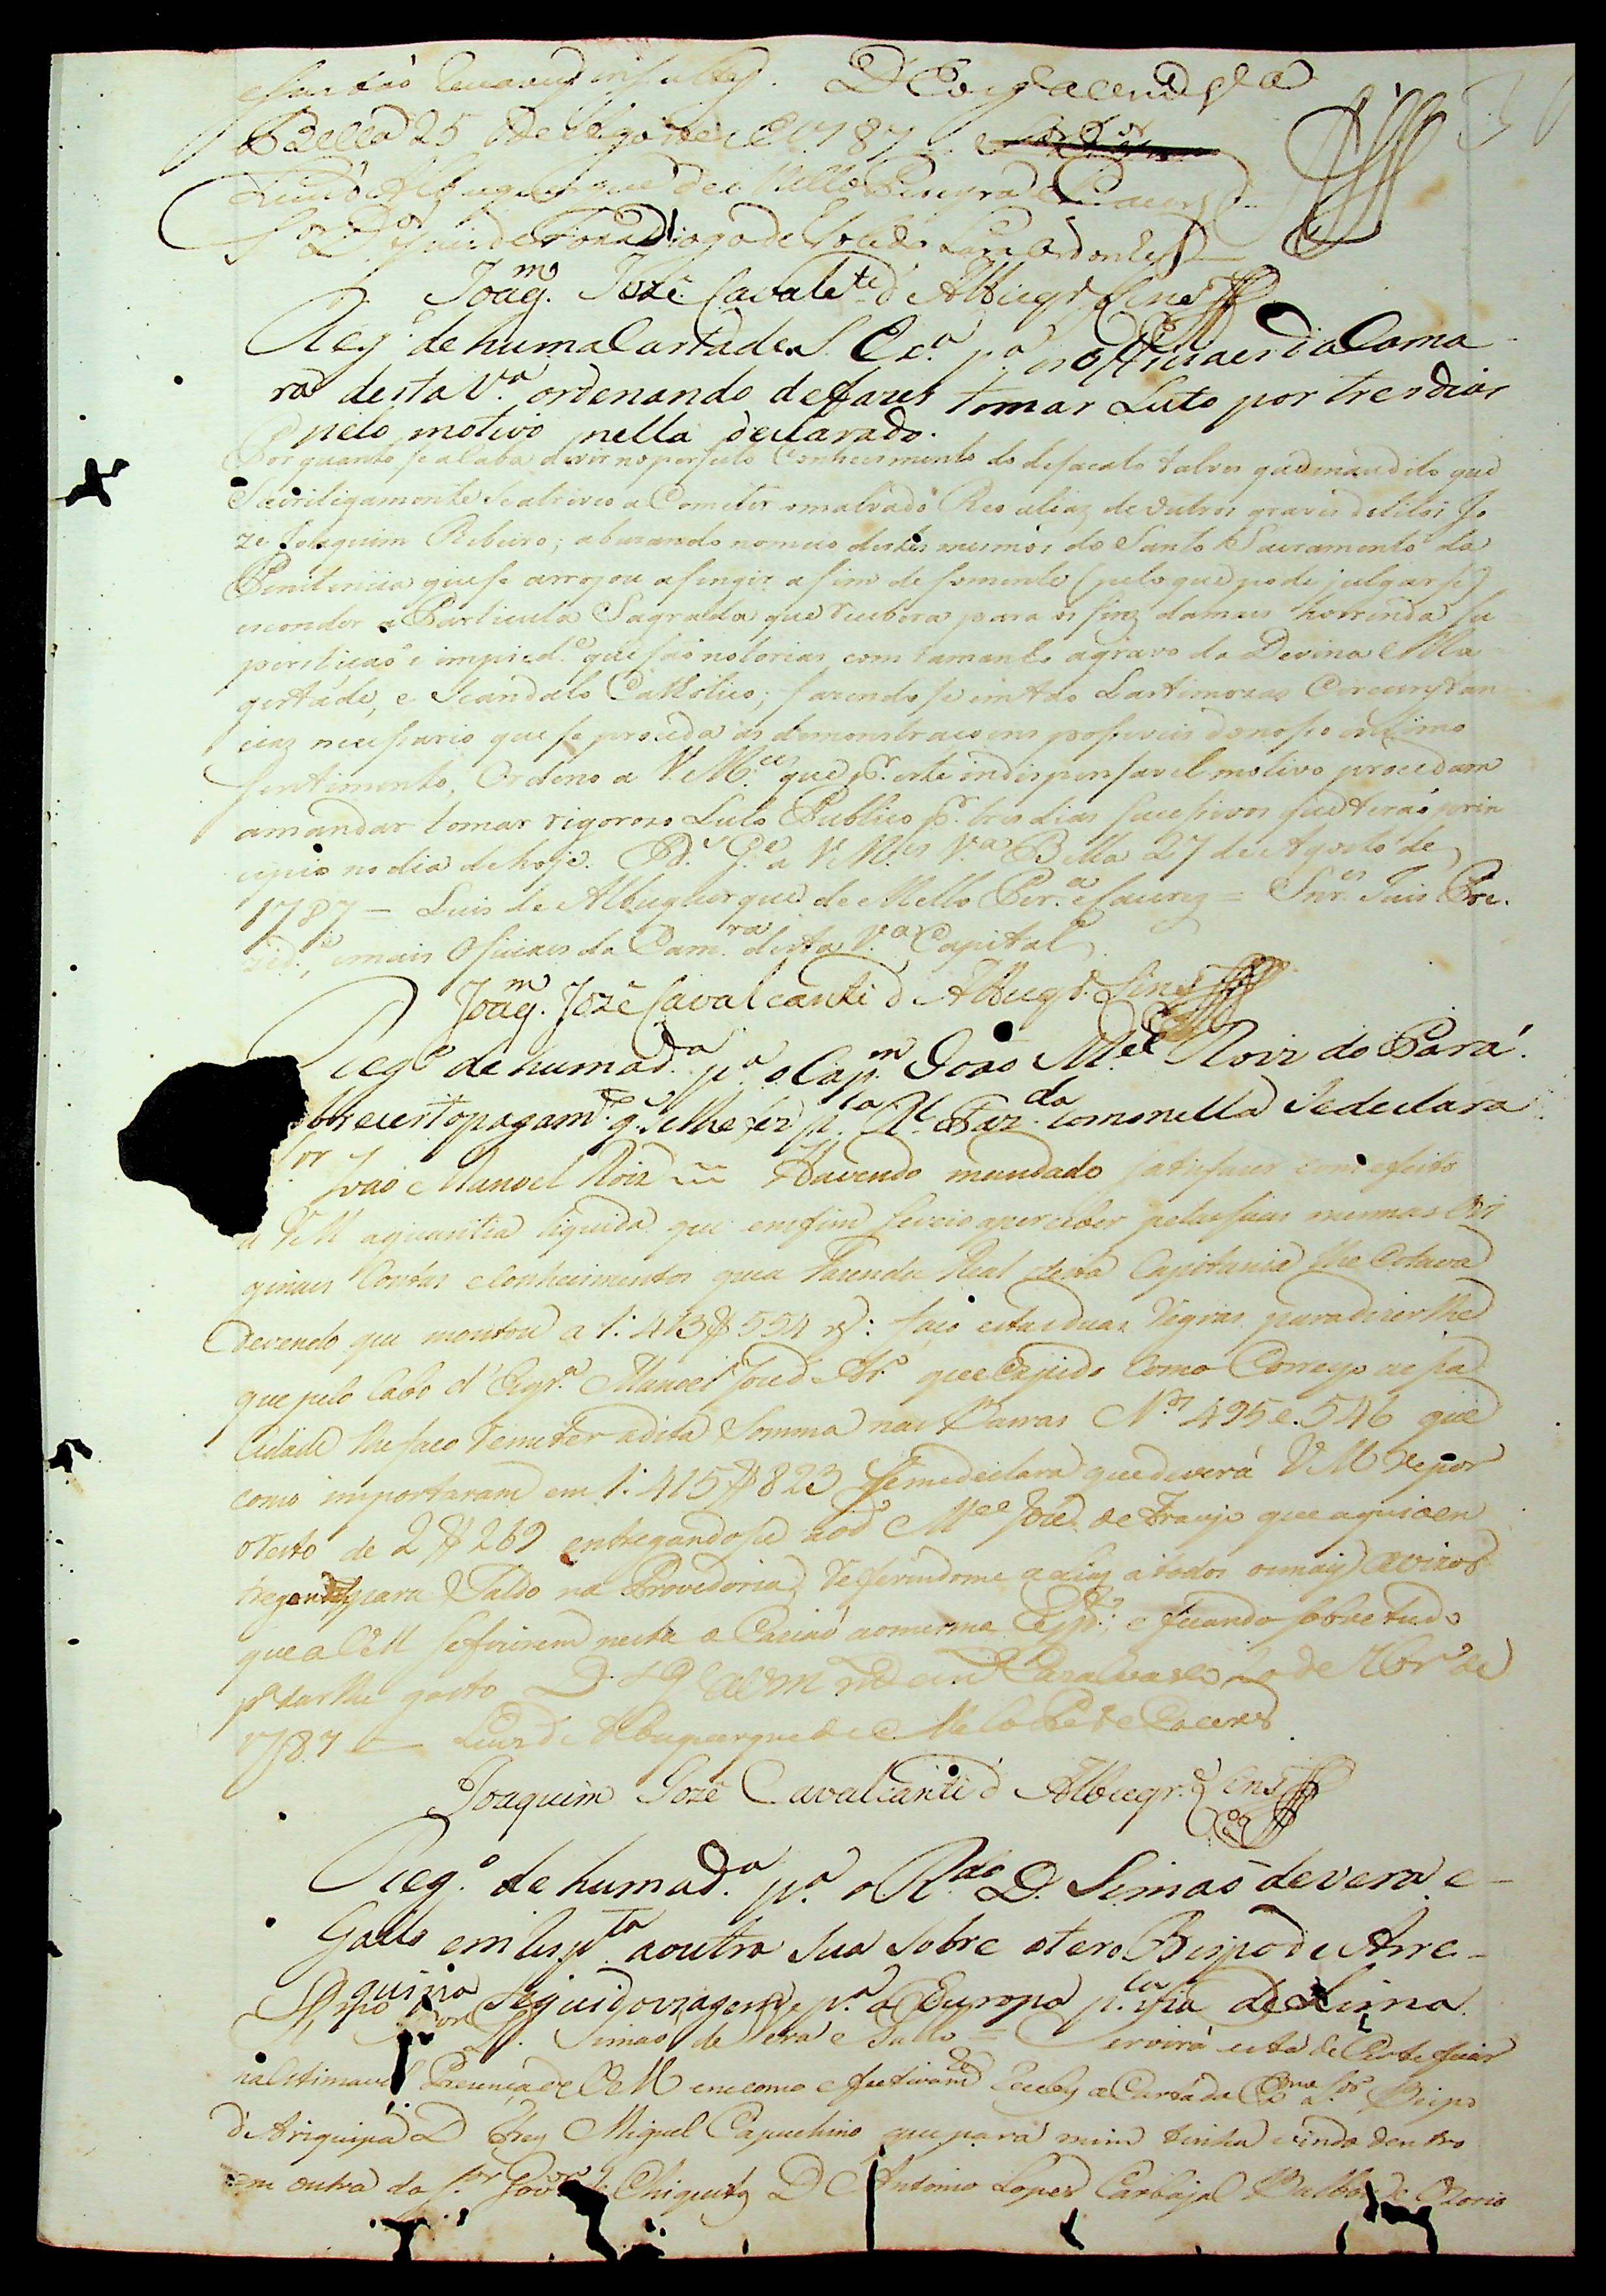 D.s G.e a V. Mce Villa
Bella 25 de Agosto de 1787
Luis de Albuquerque de Mello Pereyra e Caceres
Snr. Dor. Juis de Fora Diogo de Toledo Lara Ordonhes
Joaqm. Jozé Cavalcte. d'Albuqr. Lins
Reg.o de huma Carta de S. Exa. pa. os Officiaes da Cama
ra desta Va. ordenando de fazer tomar Luto por tres dias
pelo motivo nella declarado.
Por quanto se acaba de vir no perfeito Conhecimento do desacato talves que inaudito que
Sacrilegamente se atreveo a Cometer o malvado Reo aliaz de outros graves delitos Jo
zé Joaquim Ribeiro; abuzando no meio destes mesmos do Santo Sacramento da
Penitencia que se arrojou a fingir a fim de somente (pelo que pode julgar se)
esconder a Particula Sagrada que recebera para os fins da mais horrenda su
perstiçaõ e impied.e que saõ notorias, com tamanho agravo da Devina Ma
gestade, e Scandalo Catholico; fazendo se em taõ Lastimozas Circunstan
ciaz necessario que se proceda ás demonstraçoens possiveis do nosso intimo
sentimento, Ordeno a V. Mces. que pr. este indispensavel motivo procedam
amandar tomar rigorozo Luto Publico pr. tres dias sucesivos que teraõ prin
cipio no dia de hoje. Ds. Ge. a V. Mces. Va. Bella 27 de Agosto de
1787 = Luis de Albuquerque de Mello Per.a e Caceres = Snres. Juis Pre.
zide., e mais Oficiaes da Camra. desta Va. Capital
Joaqm. Jozé Cavalcanti d'Albuqr. Lins
Rego. de humad.a pa. o Capm. Joaõ Mel. Roiz do Pará
obre certo pagamto. q. se lhe fez pla. Rl. Fazda. como nella se declara.
Sor. Joaõ Manoel Roiz = Havendo mandado satisfazer com efeito
a VM aquantia liquida que emfim se veio aperceber pelas suas mesmas Ori
ginaes Contas e Conhecimentos que a Fazenda Real desta Capitania lhe estava
devendo que montou a 1:413$554 rs: faço estas duas regras para dizerlhe
que pelo Cabo d'Esqra. Manoel Joze de Aro. que expedi Como Correyo a essa
Cidade lhe faço remeter adita Somma nas Barras Nos. 495 e 546 que
como importaram em 1:415$823 se me declara que deverá VM repor
o resto de 2$269 entregandose ao do. Mel. Joze de Araujo que aqui o en
tregará para Saldo na Provedoria, referindome aliaz a todos os mais avizos
que a VM se fizerem nesta Ocaziaõ a o mesmo resp.to: e ficando sobre tudo
pa. darlhe gosto D.s G.e a VM Rl. Caza de de 7bro. de
1787 = Luis de Albuquerque de Mello Pra. e Caceres
Joaquim Jozé Cavalcanti d'Albuqr. Lins
Rego. de humad.a pa. o Rdo. D. Simaõ de vera e
Gallo em respta. aoutra sua sobre oter o Bispo de Arre
quipa seguido viagem pa. a Europa pla. via de Lima
D. Simaõ de Vera e Gallo = Servirá esta de Certeficar
naestimavel Prezença de VM em como efectivamte. recebi a Carta do Exmo. Sr. Bispo
d'Ariquipa D Frey Miguel Capuchino que para mim tinha vindo dentro
em outra do Sor. Govor. de Chiquitos D Antonio Lopes Carbajal Balboa de Ozorio